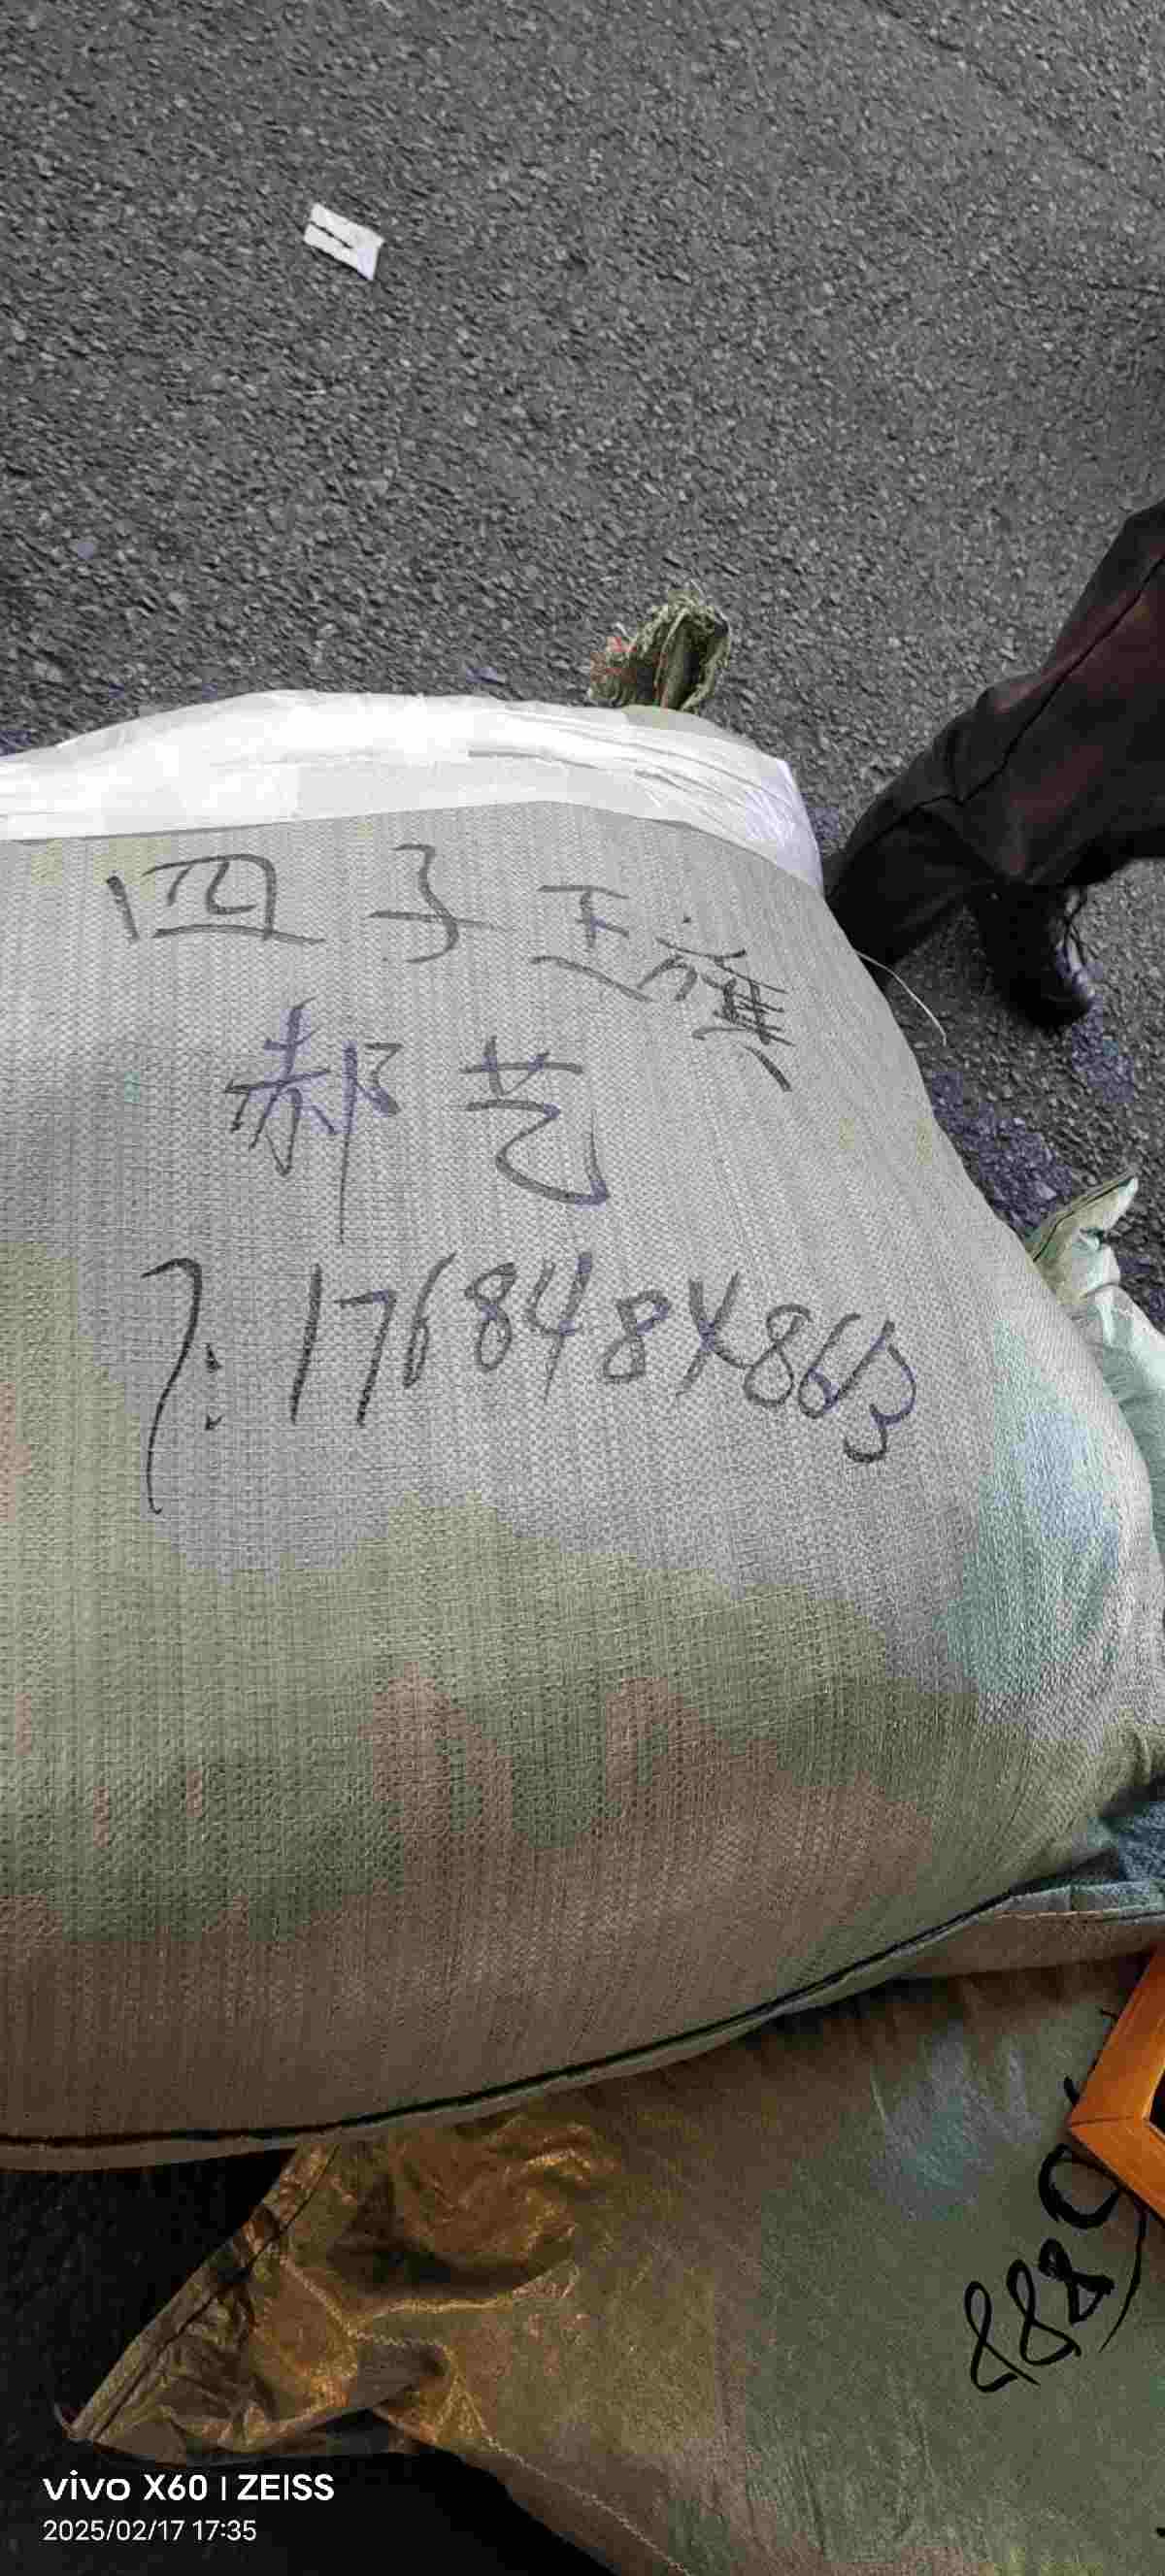 四子王旗
郝艺
7:17684848613
888
vivo X60 | ZEISS
2025/02/17 17:35